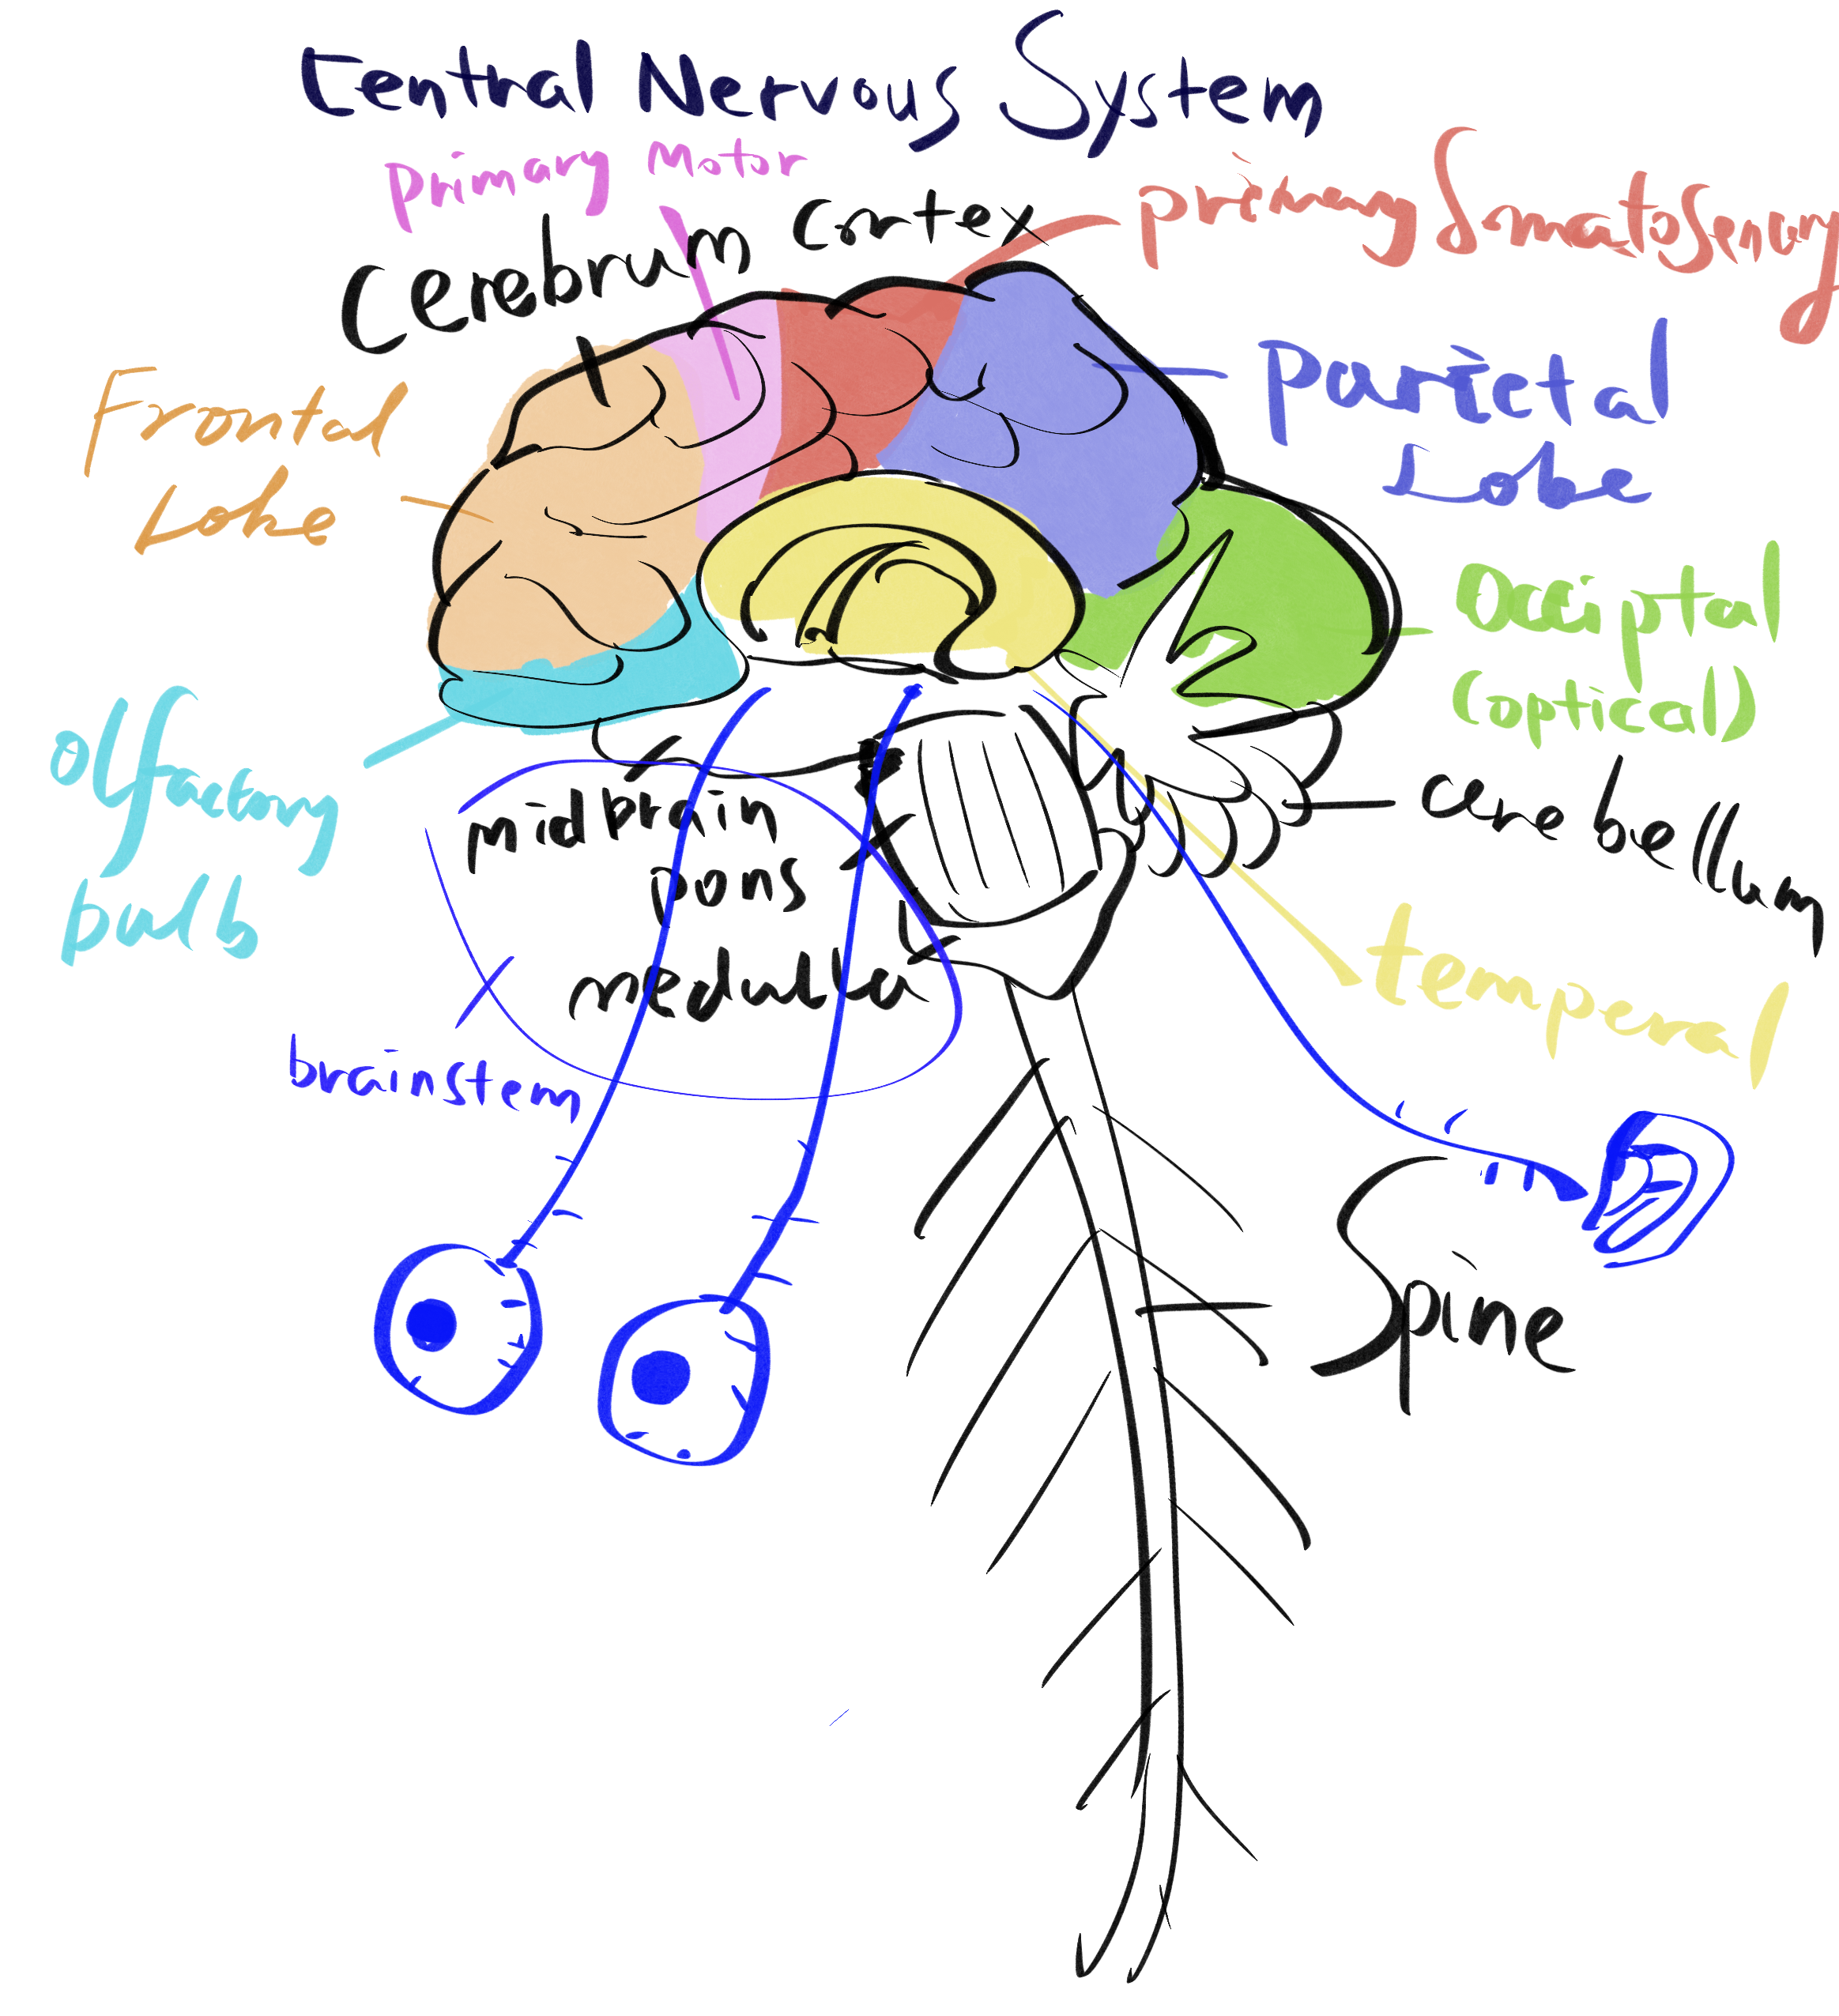 Central Nervous System
primary Motor
Cerebrum Cortex
primary Somatosensory
Frontal
Lobe
Parietal
Lobe
Occiptal
(optical)
olfactory
bulb
midbrain
pons
medulla
cerebellum
temperal
brainstem
Spine